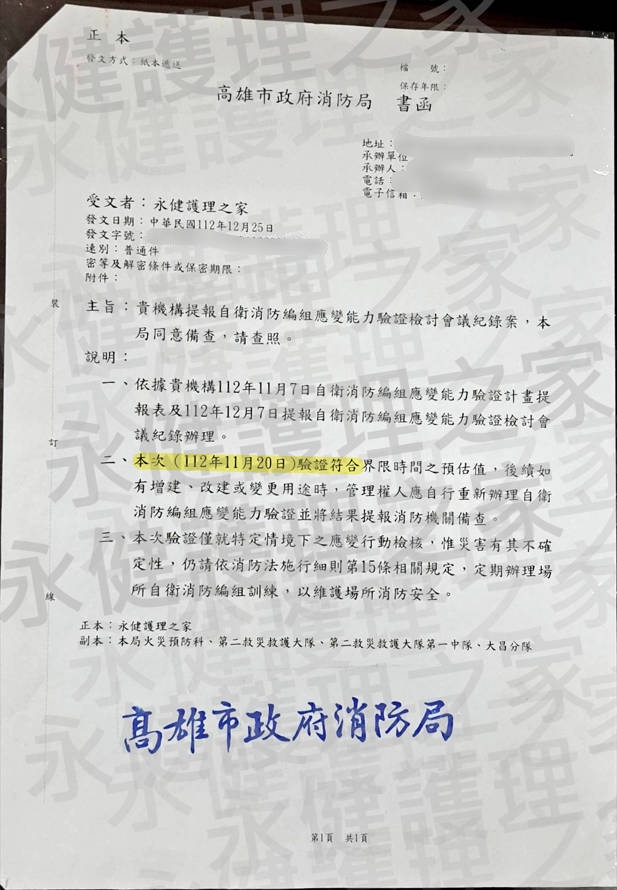 正本
發文方式：紙本遞送
檔　號：
保存年限：
高雄市政府消防局　書函
地址：
承辦單位
承辦人：
電話：
電子信箱：
受文者：永健護理之家
發文日期：中華民國112年12月25日
發文字號：
速別：普通件
密等及解密條件或保密期限：
附件：
主旨：貴機構提報自衛消防編組應變能力驗證檢討會議紀錄案，本
局同意備查，請查照。
說明：
一、依據貴機構112年11月7日自衛消防編組應變能力驗證計畫提
報表及112年12月7日提報自衛消防編組應變能力驗證檢討會
議紀錄辦理。
二、本次（112年11月20日）驗證符合界限時間之預估值，後續如
有增建、改建或變更用途時，管理權人應自行重新辦理自衛
消防編組應變能力驗證並將結果提報消防機關備查。
三、本次驗證僅就特定情境下之應變行動檢核，惟災害有其不確
定性，仍請依消防法施行細則第15條相關規定，定期辦理場
所自衛消防編組訓練，以維護場所消防安全。
裝
訂
線
正本：永健護理之家
副本：本局火災預防科、第二救災救護大隊、第二救災救護大隊第一中隊、大昌分隊
高雄市政府消防局
第1頁　共1頁
永健護理之家